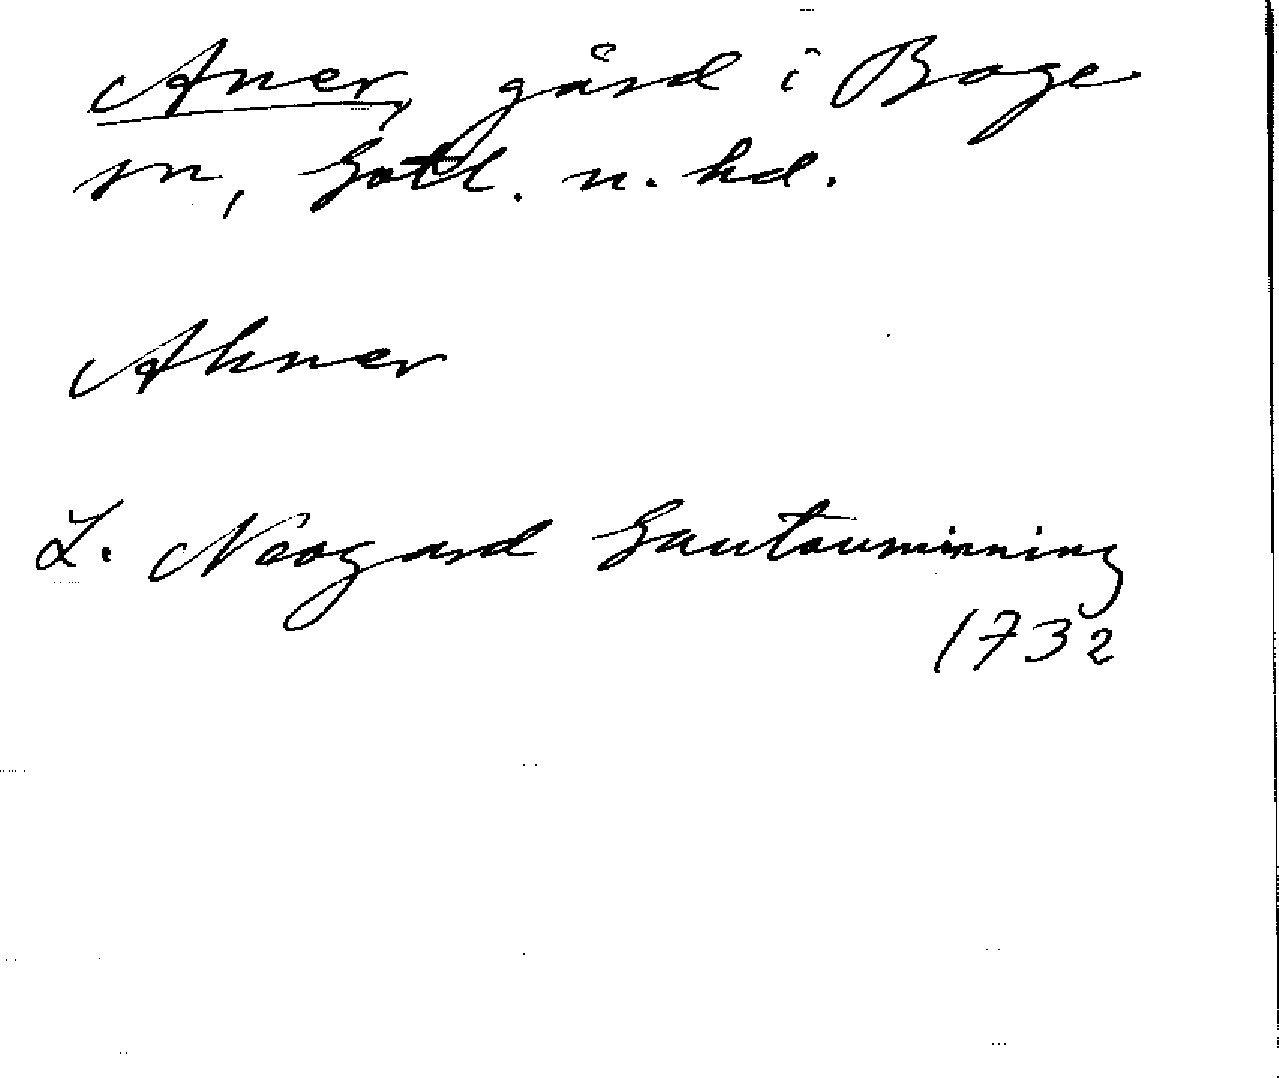 Aner, gård i Boge
sn, Gotl. n. hd.
Ahner
L. Neogard Gautauminning
1732